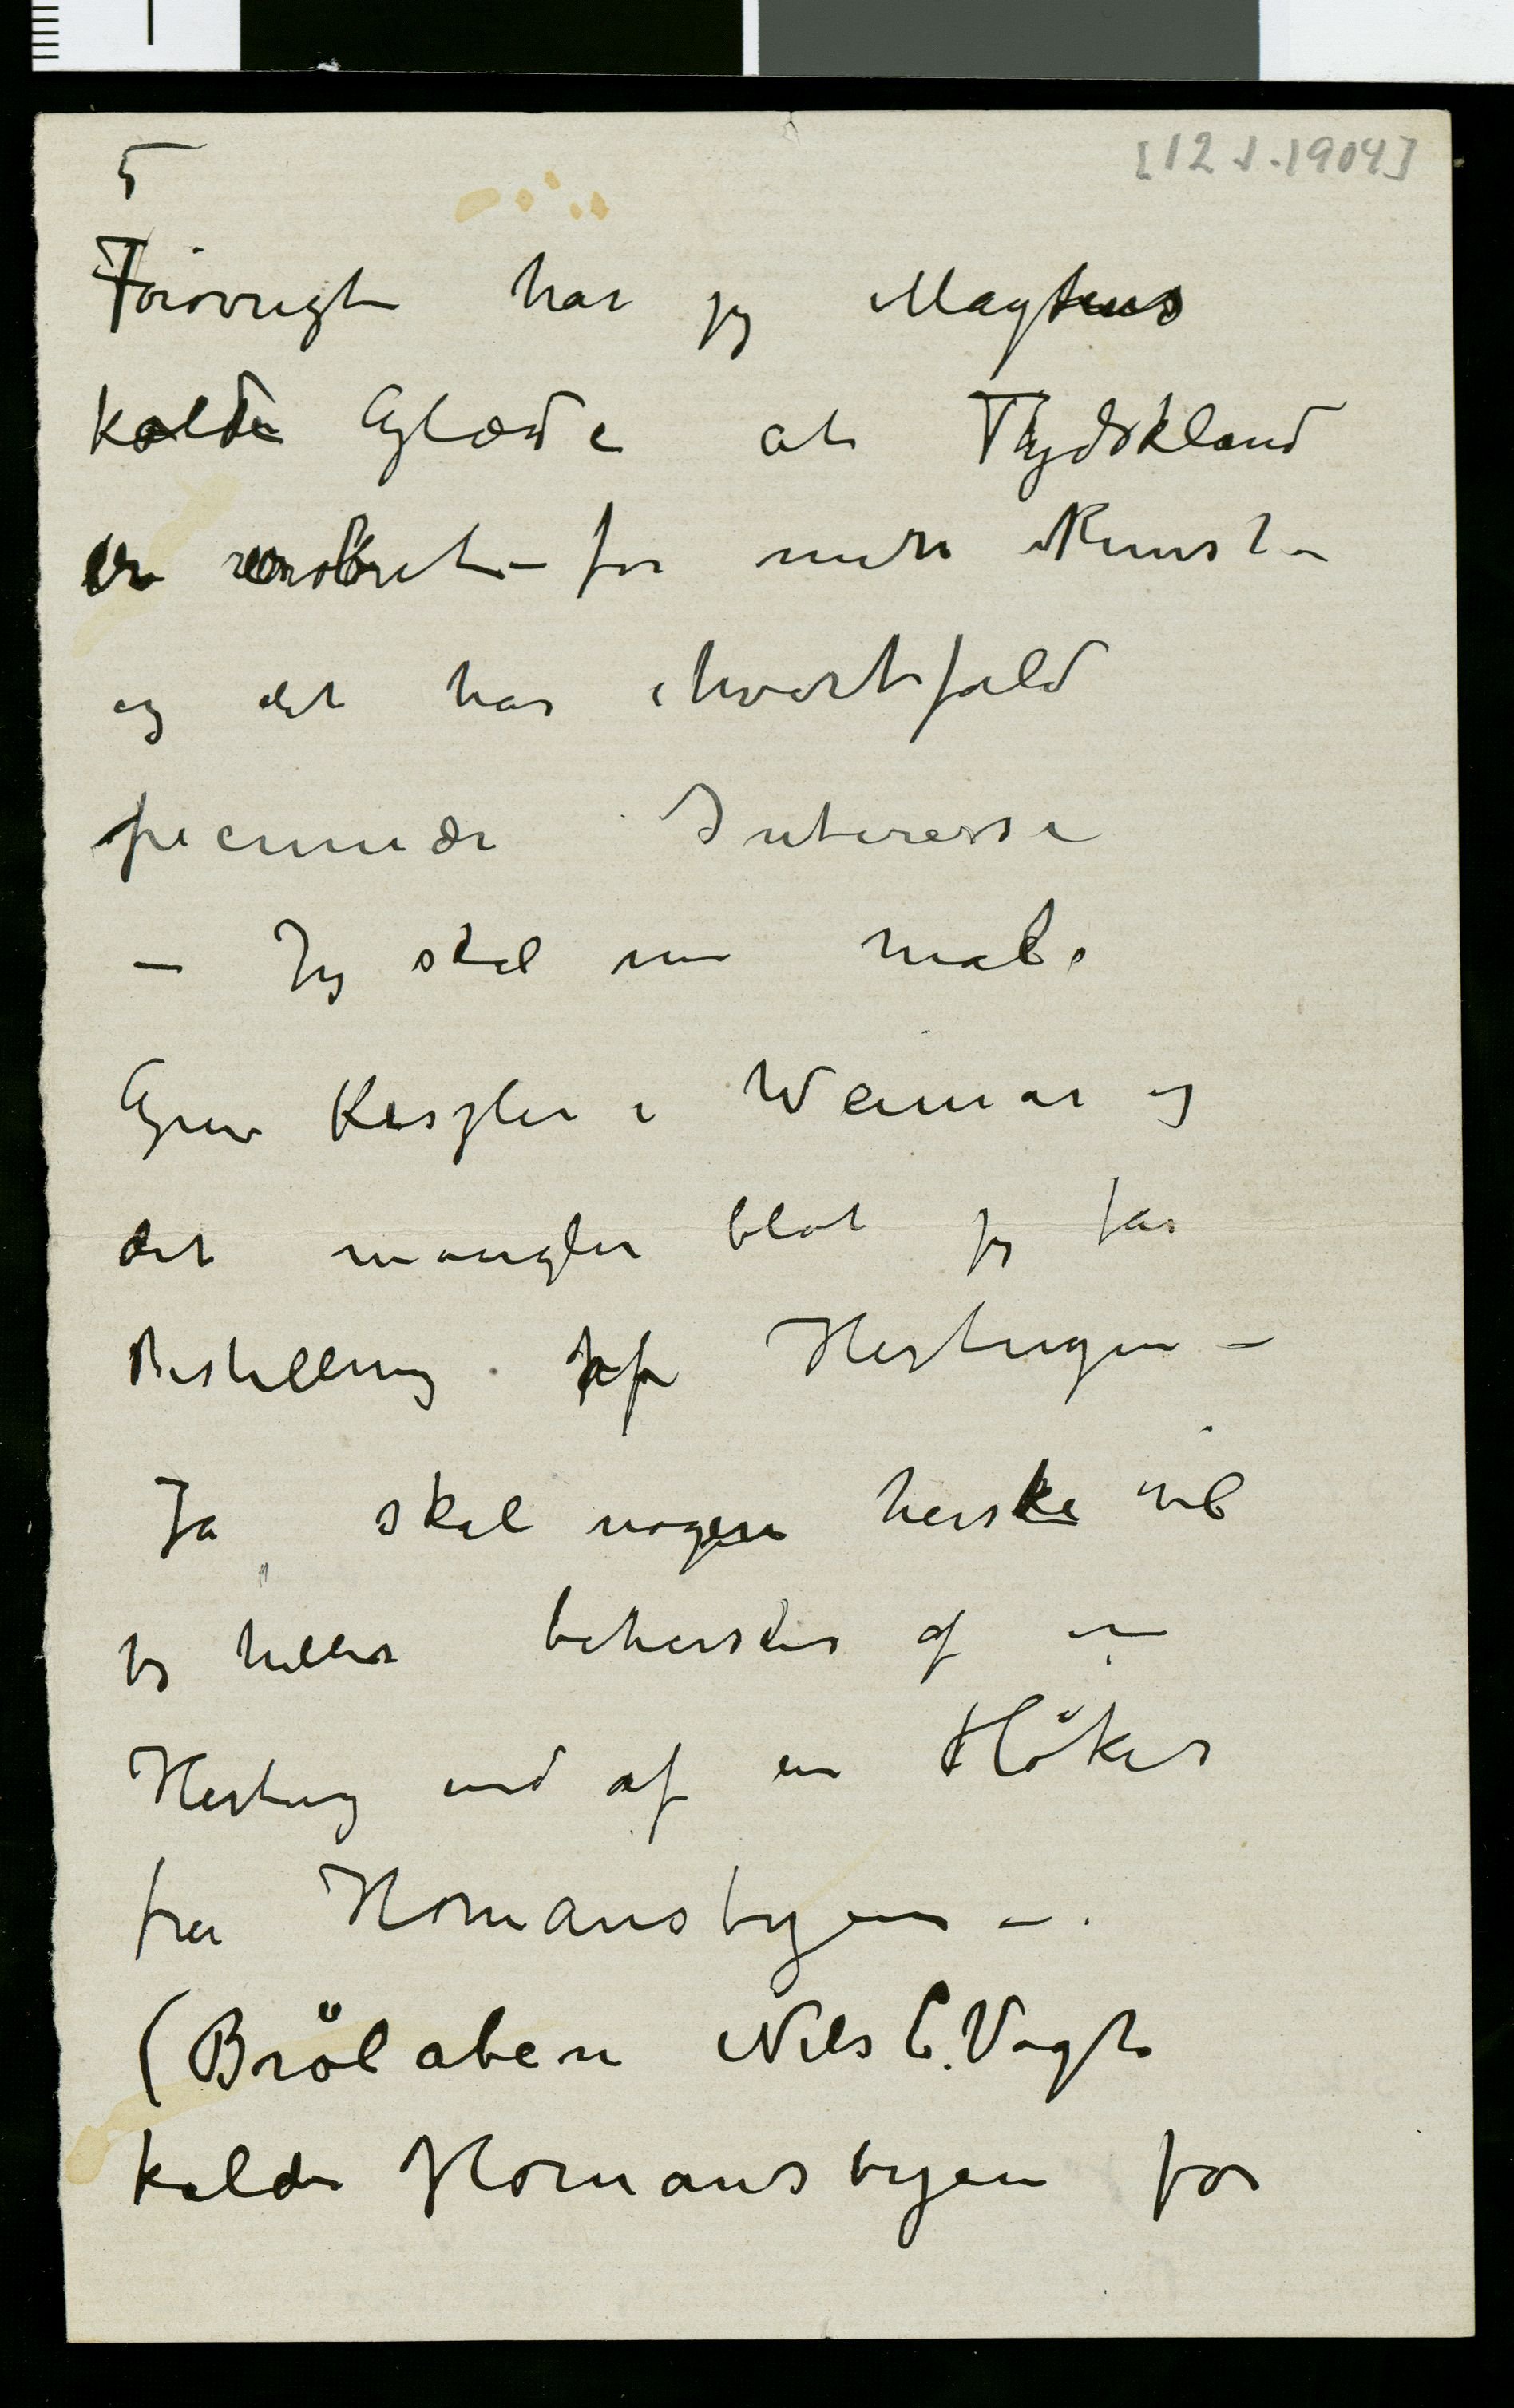 5
[12.1.1904]
Forøvrigt har jeg Magtens
kolde Glæde at Tydskland
er erobret – for min Kunst –
og det har ihvertfald
pecuniær Interesse
– Jeg skal nu male
Grev Keszler i Weimar og
det mangler blot jeg får
Bestilling på Hertugen –
Ja skal nogen herske vil
jeg heller beherskes af en
Hertug end af en Höker
fra Homansbyen –.
(Brölaben Nils C. Vogt
kalder Homansbyen for